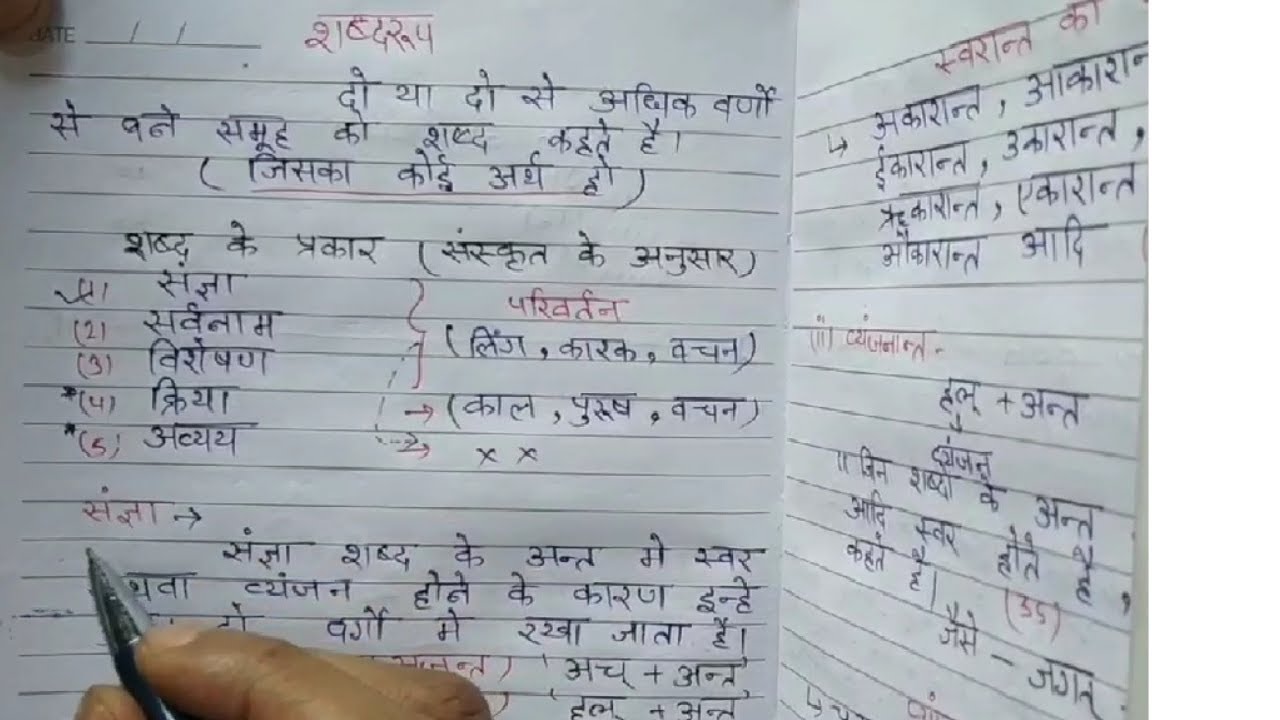 DATE / /
शब्दरूप
दो या दो से अधिक वर्णों
से बने समूह को शब्द कहते है।
( जिसका कोई अर्थ हो )
शब्द के प्रकार ( संस्कृत के अनुसार )
संज्ञा
(2) सर्वनाम
(3) विशेषण
परिवर्तन
( लिंग , कारक , वचन )
*(4) क्रिया → ( काल , पुरूष , वचन )
*(5) अव्यय → × ×
संज्ञा →
संज्ञा शब्द के अन्त मे स्वर
थवा व्यंजन होने के कारण इन्हे
दो वर्गों मे रखा जाता है।
अच् + अन्त
हल् + अन्त
स्वरान्त का
↳ अकारान्त , आकारान्
ईकारान्त , उकारान्त ,
ऋकारान्त , एकारान्त
औकारान्त आदि
(ii) व्यंजनान्त -
हल् + अन्त
व्यंजन्
जिन शब्दो के अन्त
आदि स्वर होते है ,
कहते है।
(35)
जैसे - जगत्